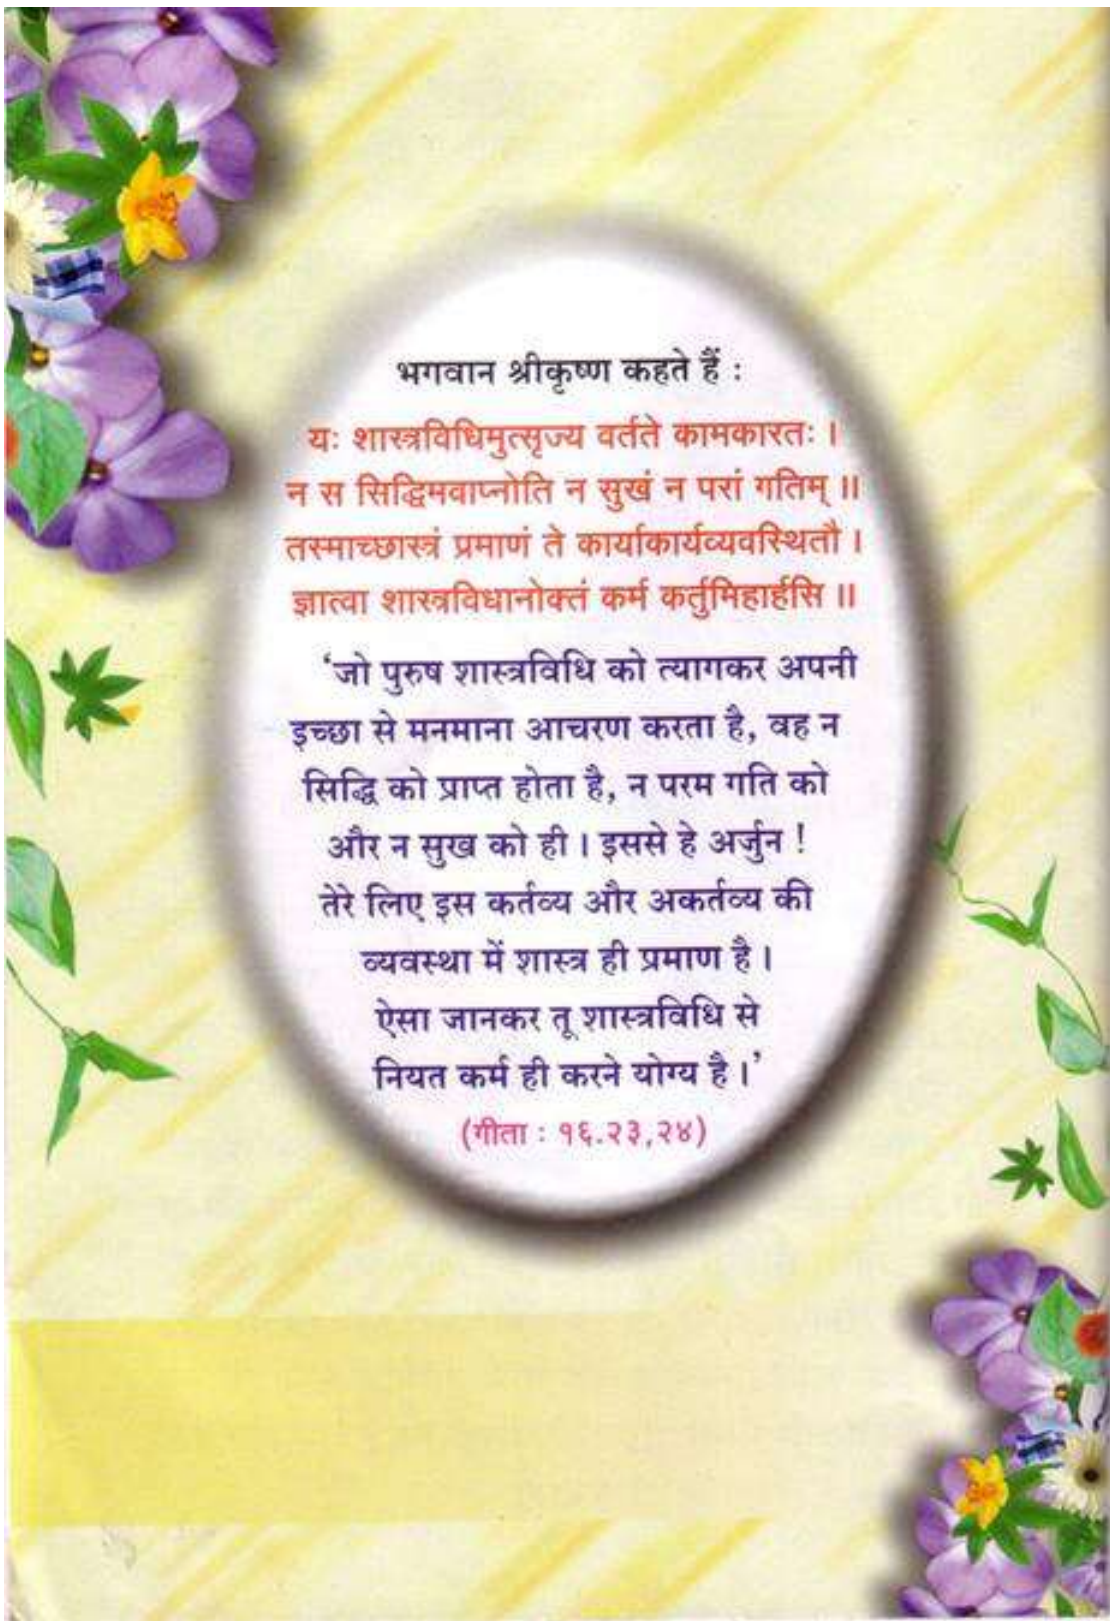 भगवान श्रीकृष्ण कहते हैं :
यः शास्त्रविधिमुत्सृज्य वर्तते कामकारतः ।
न स सिद्धिमवाप्नोति न सुखं न परां गतिम् ॥
तस्माच्छास्त्रं प्रमाणं ते कार्याकार्यव्यवस्थितौ ।
ज्ञात्वा शास्त्रविधानोक्तं कर्म कर्तुमिहार्हसि ॥
‘जो पुरुष शास्त्रविधि को त्यागकर अपनी
इच्छा से मनमाना आचरण करता है, वह न
सिद्धि को प्राप्त होता है, न परम गति को
और न सुख को ही । इससे हे अर्जुन !
तेरे लिए इस कर्तव्य और अकर्तव्य की
व्यवस्था में शास्त्र ही प्रमाण है ।
ऐसा जानकर तू शास्त्रविधि से
नियत कर्म ही करने योग्य है ।’
(गीता : १६.२३,२४)